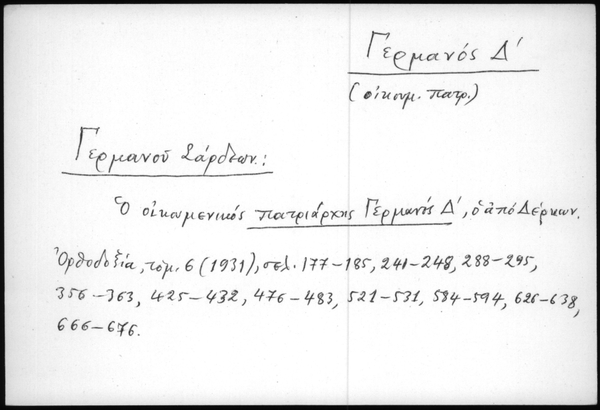 Γερμανός Δ΄
(οἰκουμ. πατρ.)
Γερμανοῦ Σάρδεων.:
Ὁ οἰκουμενικός πατριάρχης Γερμανός Δ΄, ὁ ἀπό Δέρκων.
Ὀρθοδοξία, τόμ. 6 (1931), σελ. 177-185, 241-248, 288-295,
356-363, 425-432, 476-483, 521-531, 584-594, 626-638,
666-676.